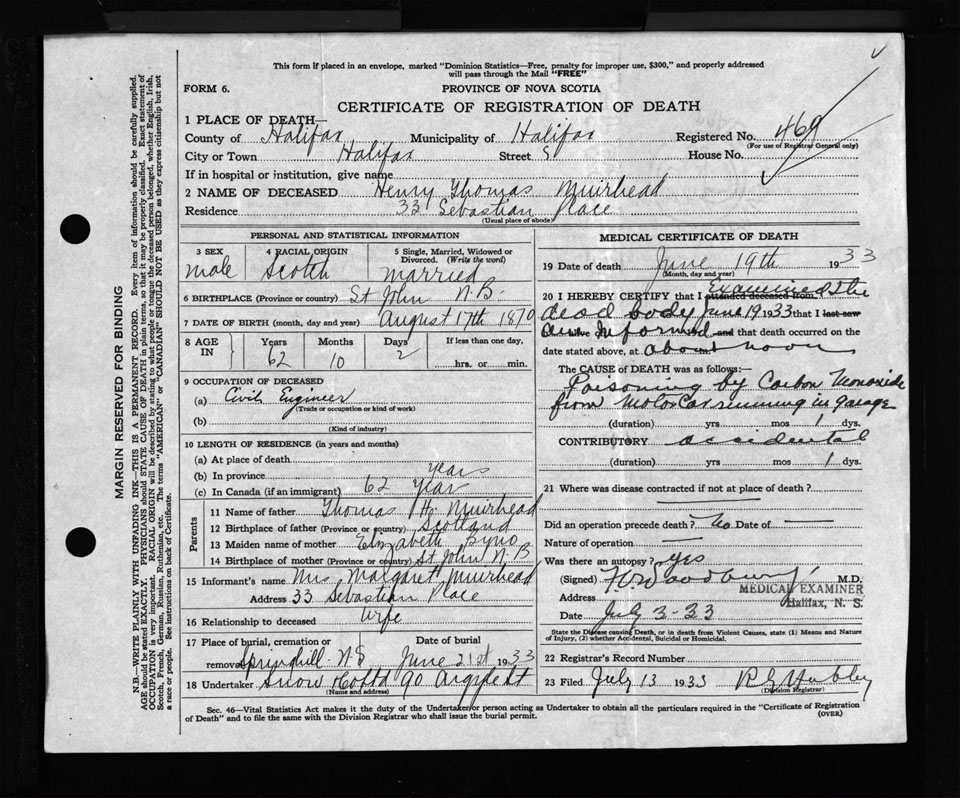 This form if placed in an envelope, marked "Dominion Statistics—Free, penalty for improper use, $300," and properly addressed
will pass through the Mail "FREE"
FORM 6. PROVINCE OF NOVA SCOTIA
CERTIFICATE OF REGISTRATION OF DEATH
1 PLACE OF DEATH—
County of Halifax Municipality of Halifax Registered No. 469
(For use of Registrar General only)
City or Town Halifax Street S House No.
If in hospital or institution, give name
2 NAME OF DECEASED Henry Thomas Muirhead
Residence 33 Sebastian Place
(Usual place of abode)
PERSONAL AND STATISTICAL INFORMATION
3 SEX 4 RACIAL ORIGIN 5 Single, Married, Widowed or
Divorced. (Write the word)
male Scotch married
6 BIRTHPLACE (Province or country) St John N.B.
7 DATE OF BIRTH (month, day and year) August 17th 1870
8 AGE IN Years Months Days If less than one day,
62 10 2 hrs. or min.
9 OCCUPATION OF DECEASED
(a) Civil Engineer
(Trade or occupation or kind of work)
(b)
(Kind of industry)
10 LENGTH OF RESIDENCE (in years and months)
(a) At place of death
(b) In province years
(c) In Canada (if an immigrant) 62 Year
Parents
11 Name of father Thomas H. Muirhead
12 Birthplace of father (Province or country) Scotland
13 Maiden name of mother Elizabeth
14 Birthplace of mother (Province or country) St John N.B
15 Informant's name Mrs Margaret Muirhead
Address 33 Sebastian Place
16 Relationship to deceased Wife
17 Place of burial, cremation or Date of burial
removal Springhill N.S June 21st 1933
18 Undertaker Snow & Co Ltd 90 Argyle St
(Name and address)
MEDICAL CERTIFICATE OF DEATH
19 Date of death June 19th 1933
(Month, day and year)
20 I HEREBY CERTIFY that I attended deceased from Examined the
dead body June 19 1933 that I last saw
Informed and that death occurred on
date stated above, at about noon
The CAUSE of DEATH was as follows:—
Poisoning by Carbon Monoxide
from Motor Car running in garage
(duration) yrs mos 1 dys.
CONTRIBUTORY accidental
(duration) yrs mos 1 dys.
21 Where was disease contracted if not at place of death?
Did an operation precede death? No Date of —
Nature of operation —
Was there an autopsy? yes
(Signed) F. V. Woodbury M.D.
Address MEDICAL EXAMINER
Halifax, N. S.
Date July 3-33
State the Disease causing Death, or in death from Violent Causes, state (1) Means and Nature
of Injury, (2) whether Accidental, Suicidal or Homicidal.
22 Registrar's Record Number
23 Filed July 13 1933
(Division Registrar)
Sec. 46—Vital Statistics Act makes it the duty of the Undertaker/person acting as Undertaker to obtain all the particulars required in the "Certificate of Registration
of Death" and to file the same with the Division Registrar who shall issue the burial permit. (OVER)
MARGIN RESERVED FOR BINDING
N.B.—WRITE PLAINLY WITH UNFADING INK—THIS IS A PERMANENT RECORD. Every item of information should be carefully supplied.
AGE should be stated EXACTLY. PHYSICIANS should STATE CAUSE OF DEATH in plain terms, so that it may be properly classified. Exact statement of
OCCUPATION is very important. RACIAL ORIGIN will be described by stating to what people or tongue the deceased person belonged, whether English, Irish,
Scotch, French, German, Russian, Ruthenian, etc. The terms "AMERICAN" or "CANADIAN" SHOULD NOT BE USED as they express citizenship but not
a race or people. See instructions on back of Certificate.